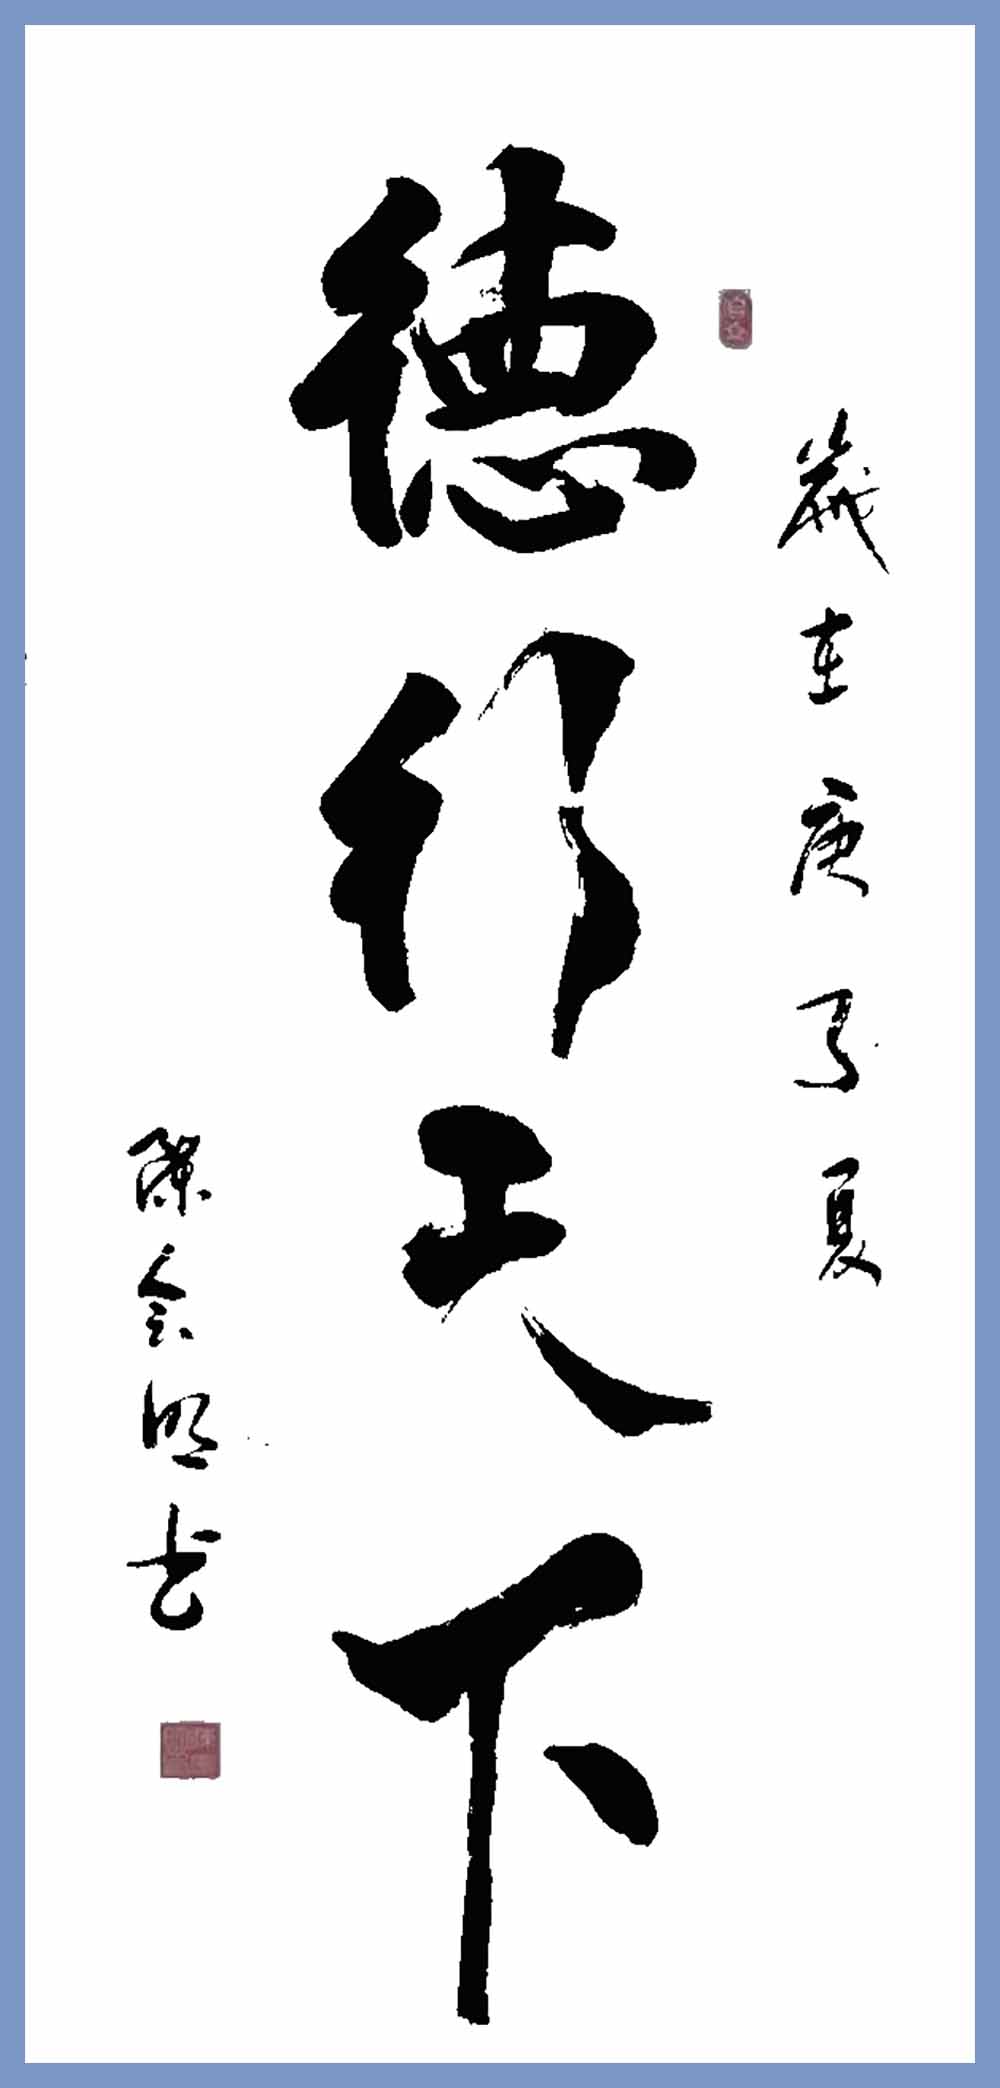 歲在庚子夏
德行天下
陳会明书